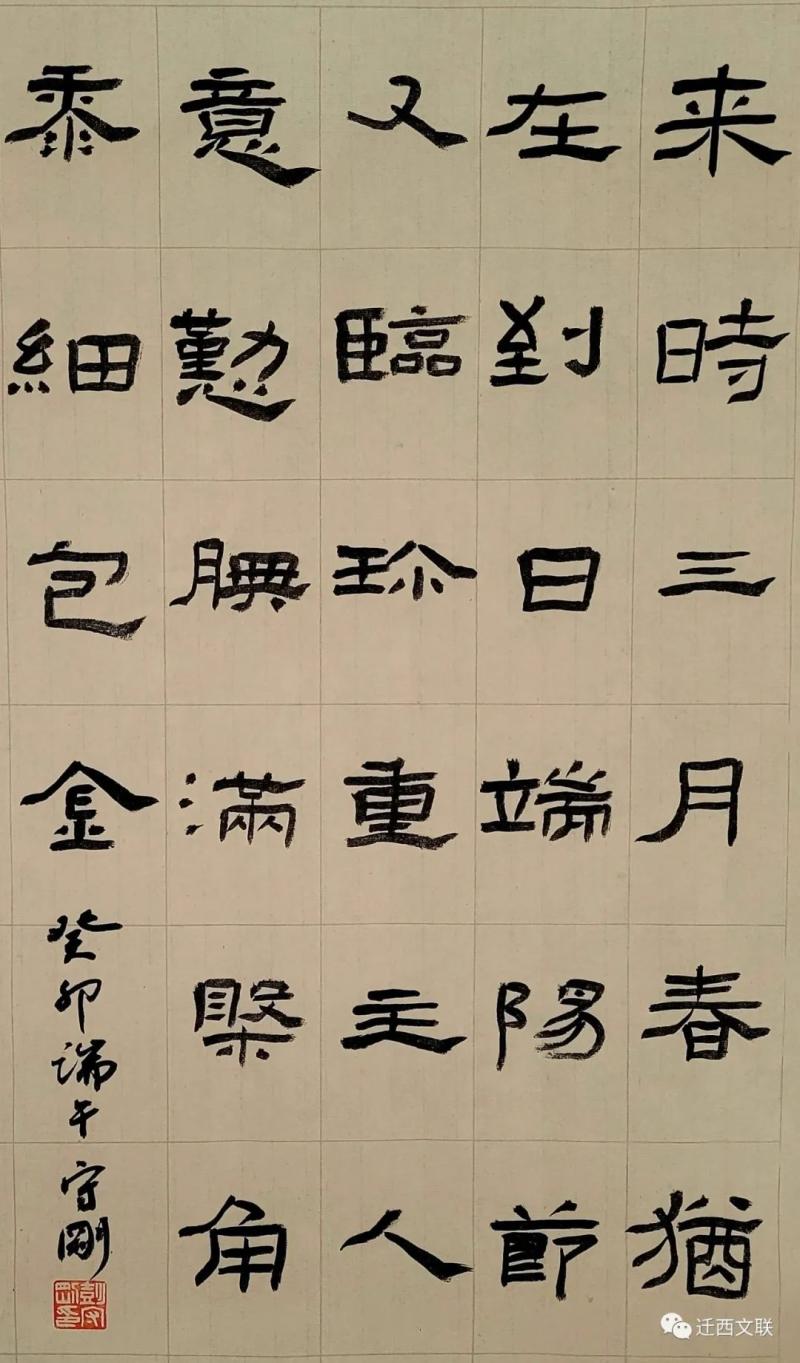 来時三月春猶
在到日端陽節
又臨珍重主人
意懃腆滿槃角
黍細包金
癸卯端午守剛
彭守剛印
迁西文联